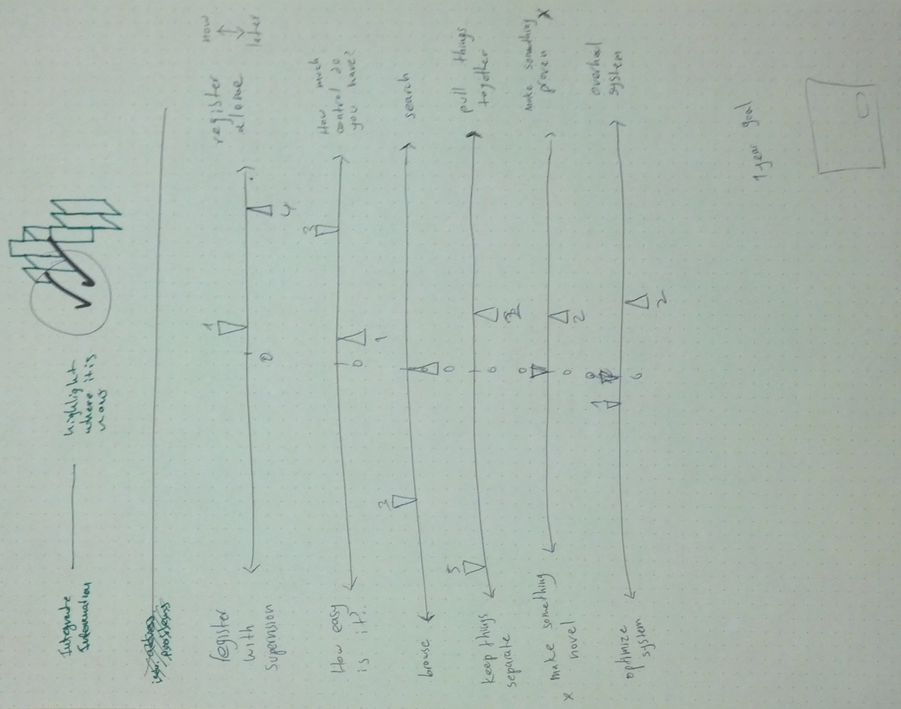 Integrate
Information
highlight
where it is
now
register
with
supervision
1
0
4
register
alone
now
later
How easy
is it?
0
1
3
How much
control do
you have?
browse
3
0
search
keep things
separate
5
0
pull things
together
x make something
novel
0
0
2
make something x
proven
optimize
system
1
0
2
overhaul
system
1 year goal